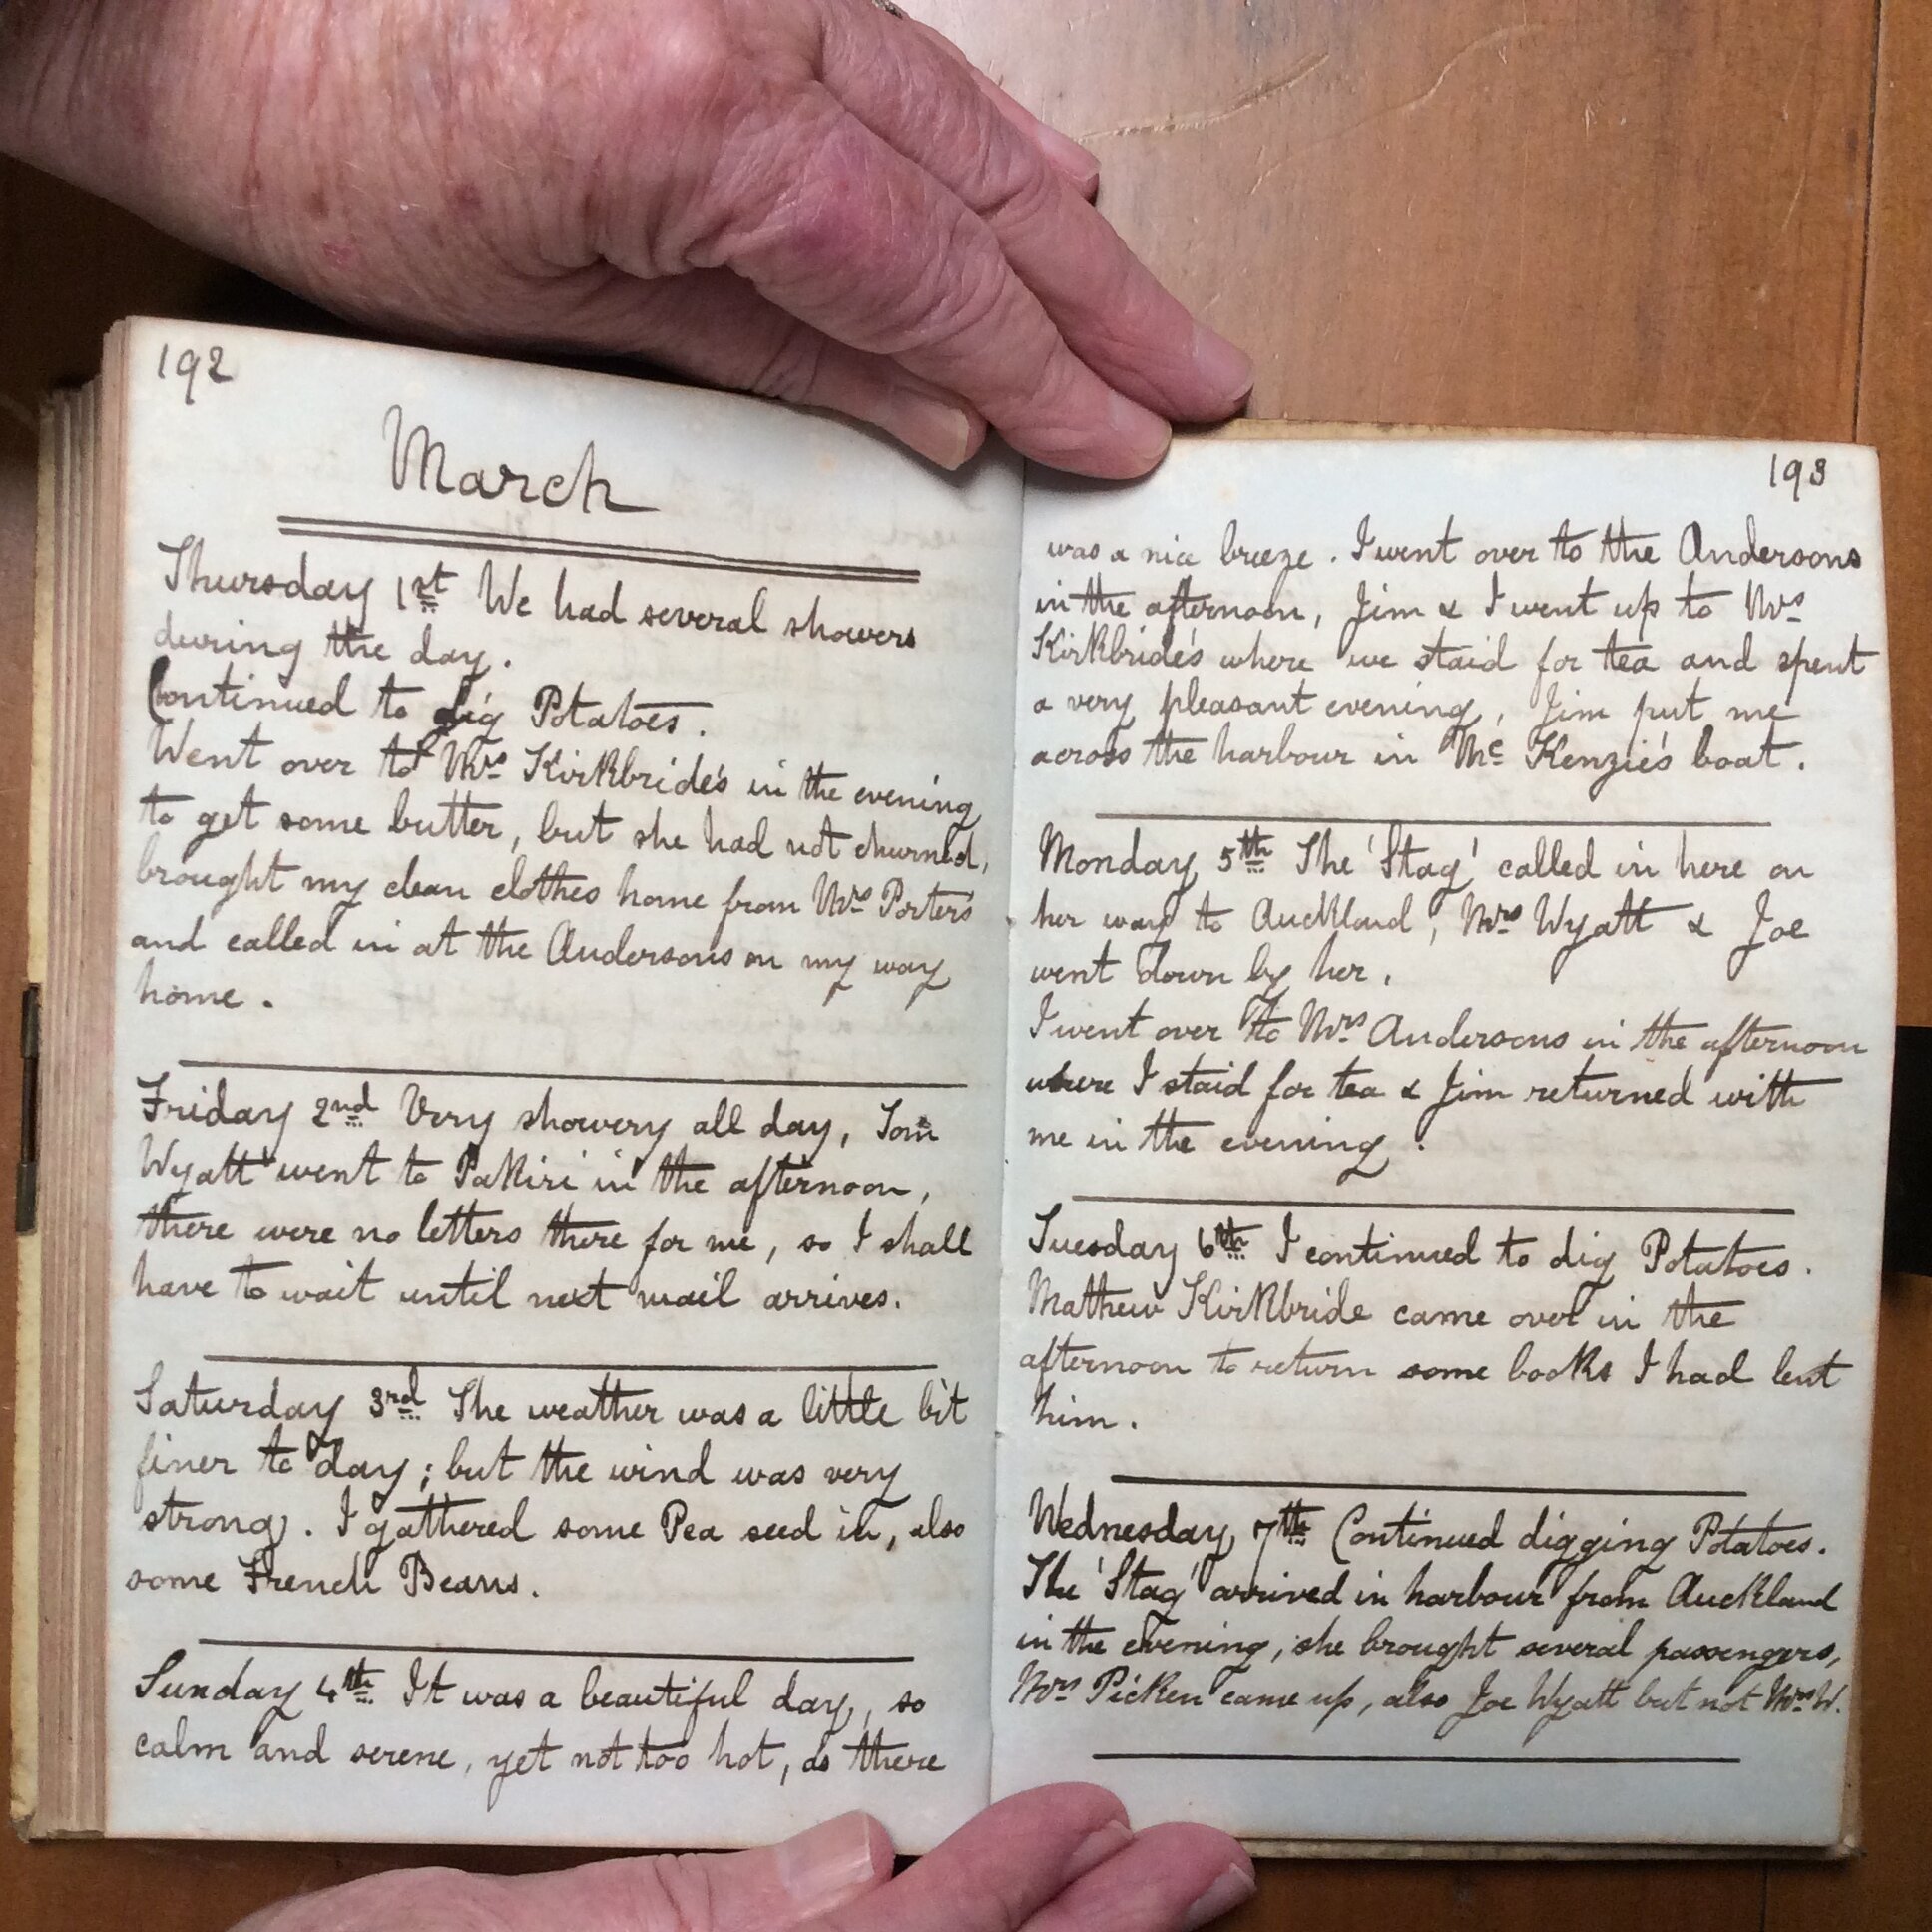 192
March
Thursday 1st We had several showers
during the day.
Continued to dig Potatoes.
Went over to Mrs Kirkbride's in the evening
to get some butter, but she had not churned,
brought my clean clothes home from Mrs Porters
and called in at the Andersons on my way
home.
Friday 2nd Very showery all day, Tom
Wyatt went to Pakiri in the afternoon,
there were no letters there for me, so I shall
have to wait until next mail arrives.
Saturday 3rd The weather was a little bit
finer to day; but the wind was very
strong. I gathered some Pea seed in, also
some French Beans.
Sunday 4th It was a beautiful day, so
calm and serene, yet not too hot, as there
193
was a nice breeze. I went over to the Andersons
in the afternoon, Jim & I went up to Mrs
Kirkbride's where we staid for tea and spent
a very pleasant evening, Jim put me
across the harbour in Mc Kenzie's boat.
Monday 5th The 'Stag' called in here on
her way to Auckland, Mrs Wyatt & Joe
went down by her.
I went over to Mrs Andersons in the afternoon
where I staid for tea & Jim returned with
me in the evening.
Tuesday 6th I continued to dig Potatoes.
Mathew Kirkbride came over in the
afternoon to return some books I had lent
him.
Wednesday 7th Continued digging Potatoes.
The 'Stag' arrived in harbour from Auckland
in the evening, she brought several passengers,
Mrs Picken came up, also Joe Wyatt but not Mrs W.